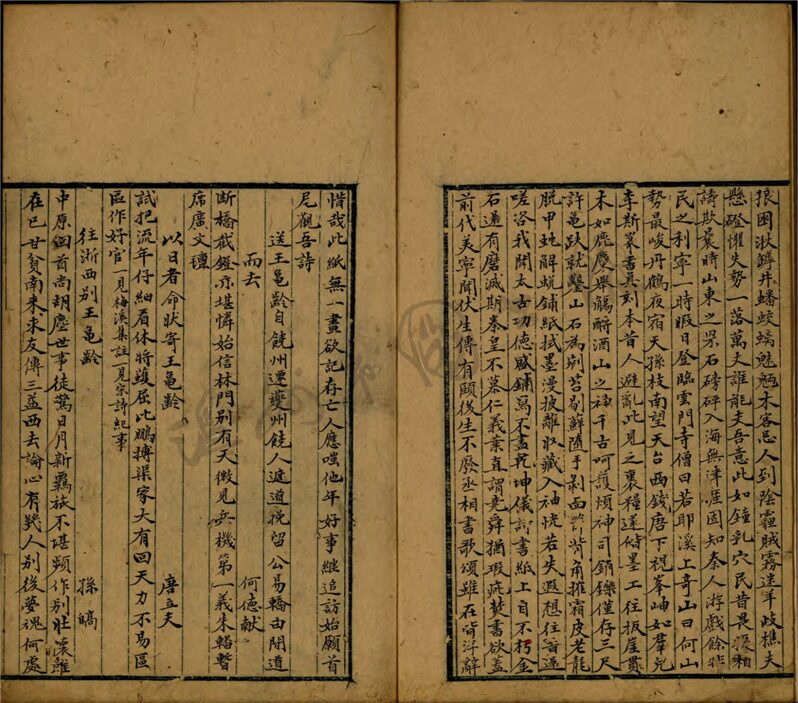 狼困湫罅井蟠蛟螭魅魎木客忌人到陰霾賊霧迷羊歧樵夫
懸磴懼失勢一落萬丈誰能支吾意此如鐘乳穴民昔畏採粗
譸欺曩時山東之罘石磅砰入海無津涯固知秦人游戲餘非
民之利寧一時暇日登臨雲門寺僧曰若耶溪上奇山曰何山
勢最峻丹鶴夜宿天孫枝南望天台西錢唐下視峯岫如羣兒
李斯篆書真刻本昔人避亂此見之裹糧遂偕墨工往扳崖貫
木如鹿麌舉觴酹酒山之神千古呵護煩神司銷鑠僅存三尺
許龜趺就鑿山石為剜苔剔鮮隨手剥面背角摧頹皮老龍
脱甲虵解蛻鋪紙拭墨漫披離収藏入袖恍若失遐想往昔遂
嗟咨我聞太古功德盛鋪寫不盡乾坤儀詩書紙上自不朽金
石還有磨滅期秦皇不慕仁義業直謂堯舜猶瑕疵焚書欲蓋
前代美寧聞伏生傳有頤後生不廢丞相書歌頌雖在皆浮辭
惜哉此紙無一畫欲記存亡人應嗤他年好事繼追訪始願首
尾觀吾詩
送王龜齡自饒州遷夔州饒人遮道挽留公易轎由間道
而去 何德献
断橋截鐙亦堪憐始信林門别有天微見兵機第一義朱轓暫
席廣文氊
以日者命状寄王龜齡 唐立夫
試把流年仔細看休將蠖屈比鵬摶渠家大有回天力不易區
區作好官一見梅溪集註一見宗詩紀事
往浙西别王龜齡 孫皜
中原回首尚胡塵世事徒驚日月新羇旅不堪頻作别壯懷雖
在已甘貧南来求友傳三益西去論心有幾人别後夢魂何處